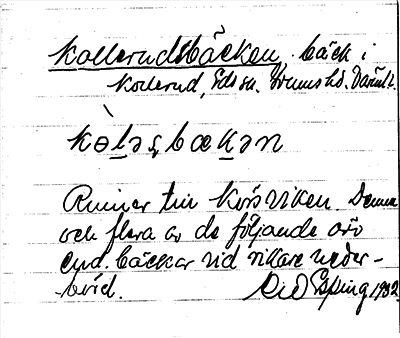 Kollerudsbäcken, bäck i
Kollerud, Eds sn. Grums hd. Värml.
kɵləʂbækən
Rinner till Körsviken. Denna
och flera av de följande äro
end. bäckar vid rikare neder-
börd. Rid Esping 1932